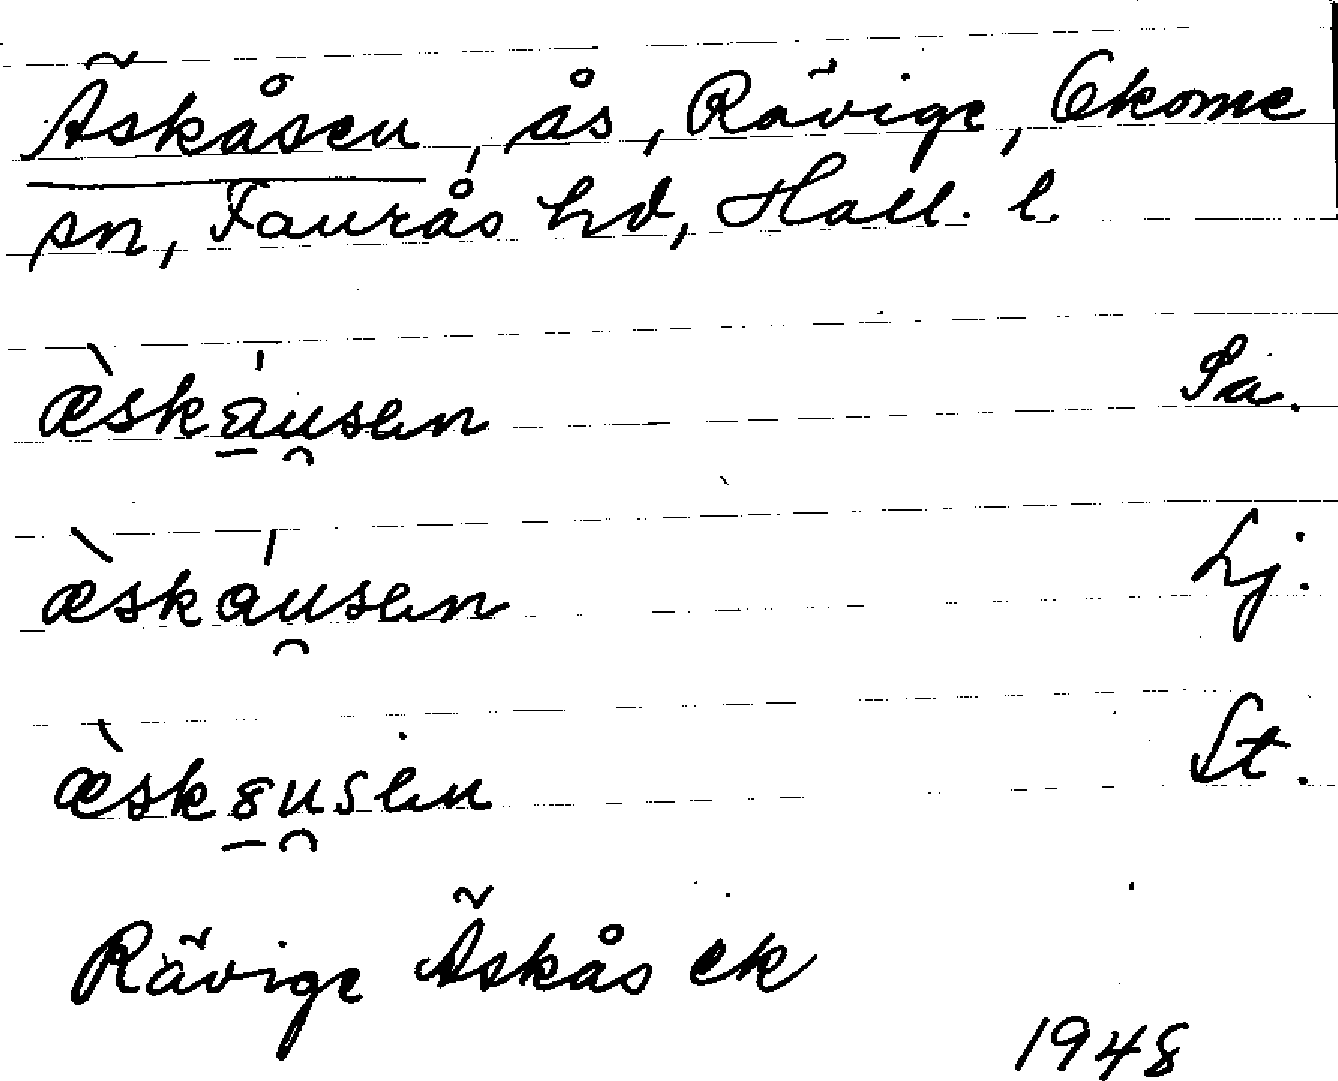 Äskåsen, ås, Rävige, Okome
sn, Faurås hd, Hall. l.
æ̀ská̱u̯sen Sa.
æ̀skáu̯sen Lj.
æ̀sk8̱u̯sen St.
Rävige Äskås ek
1948